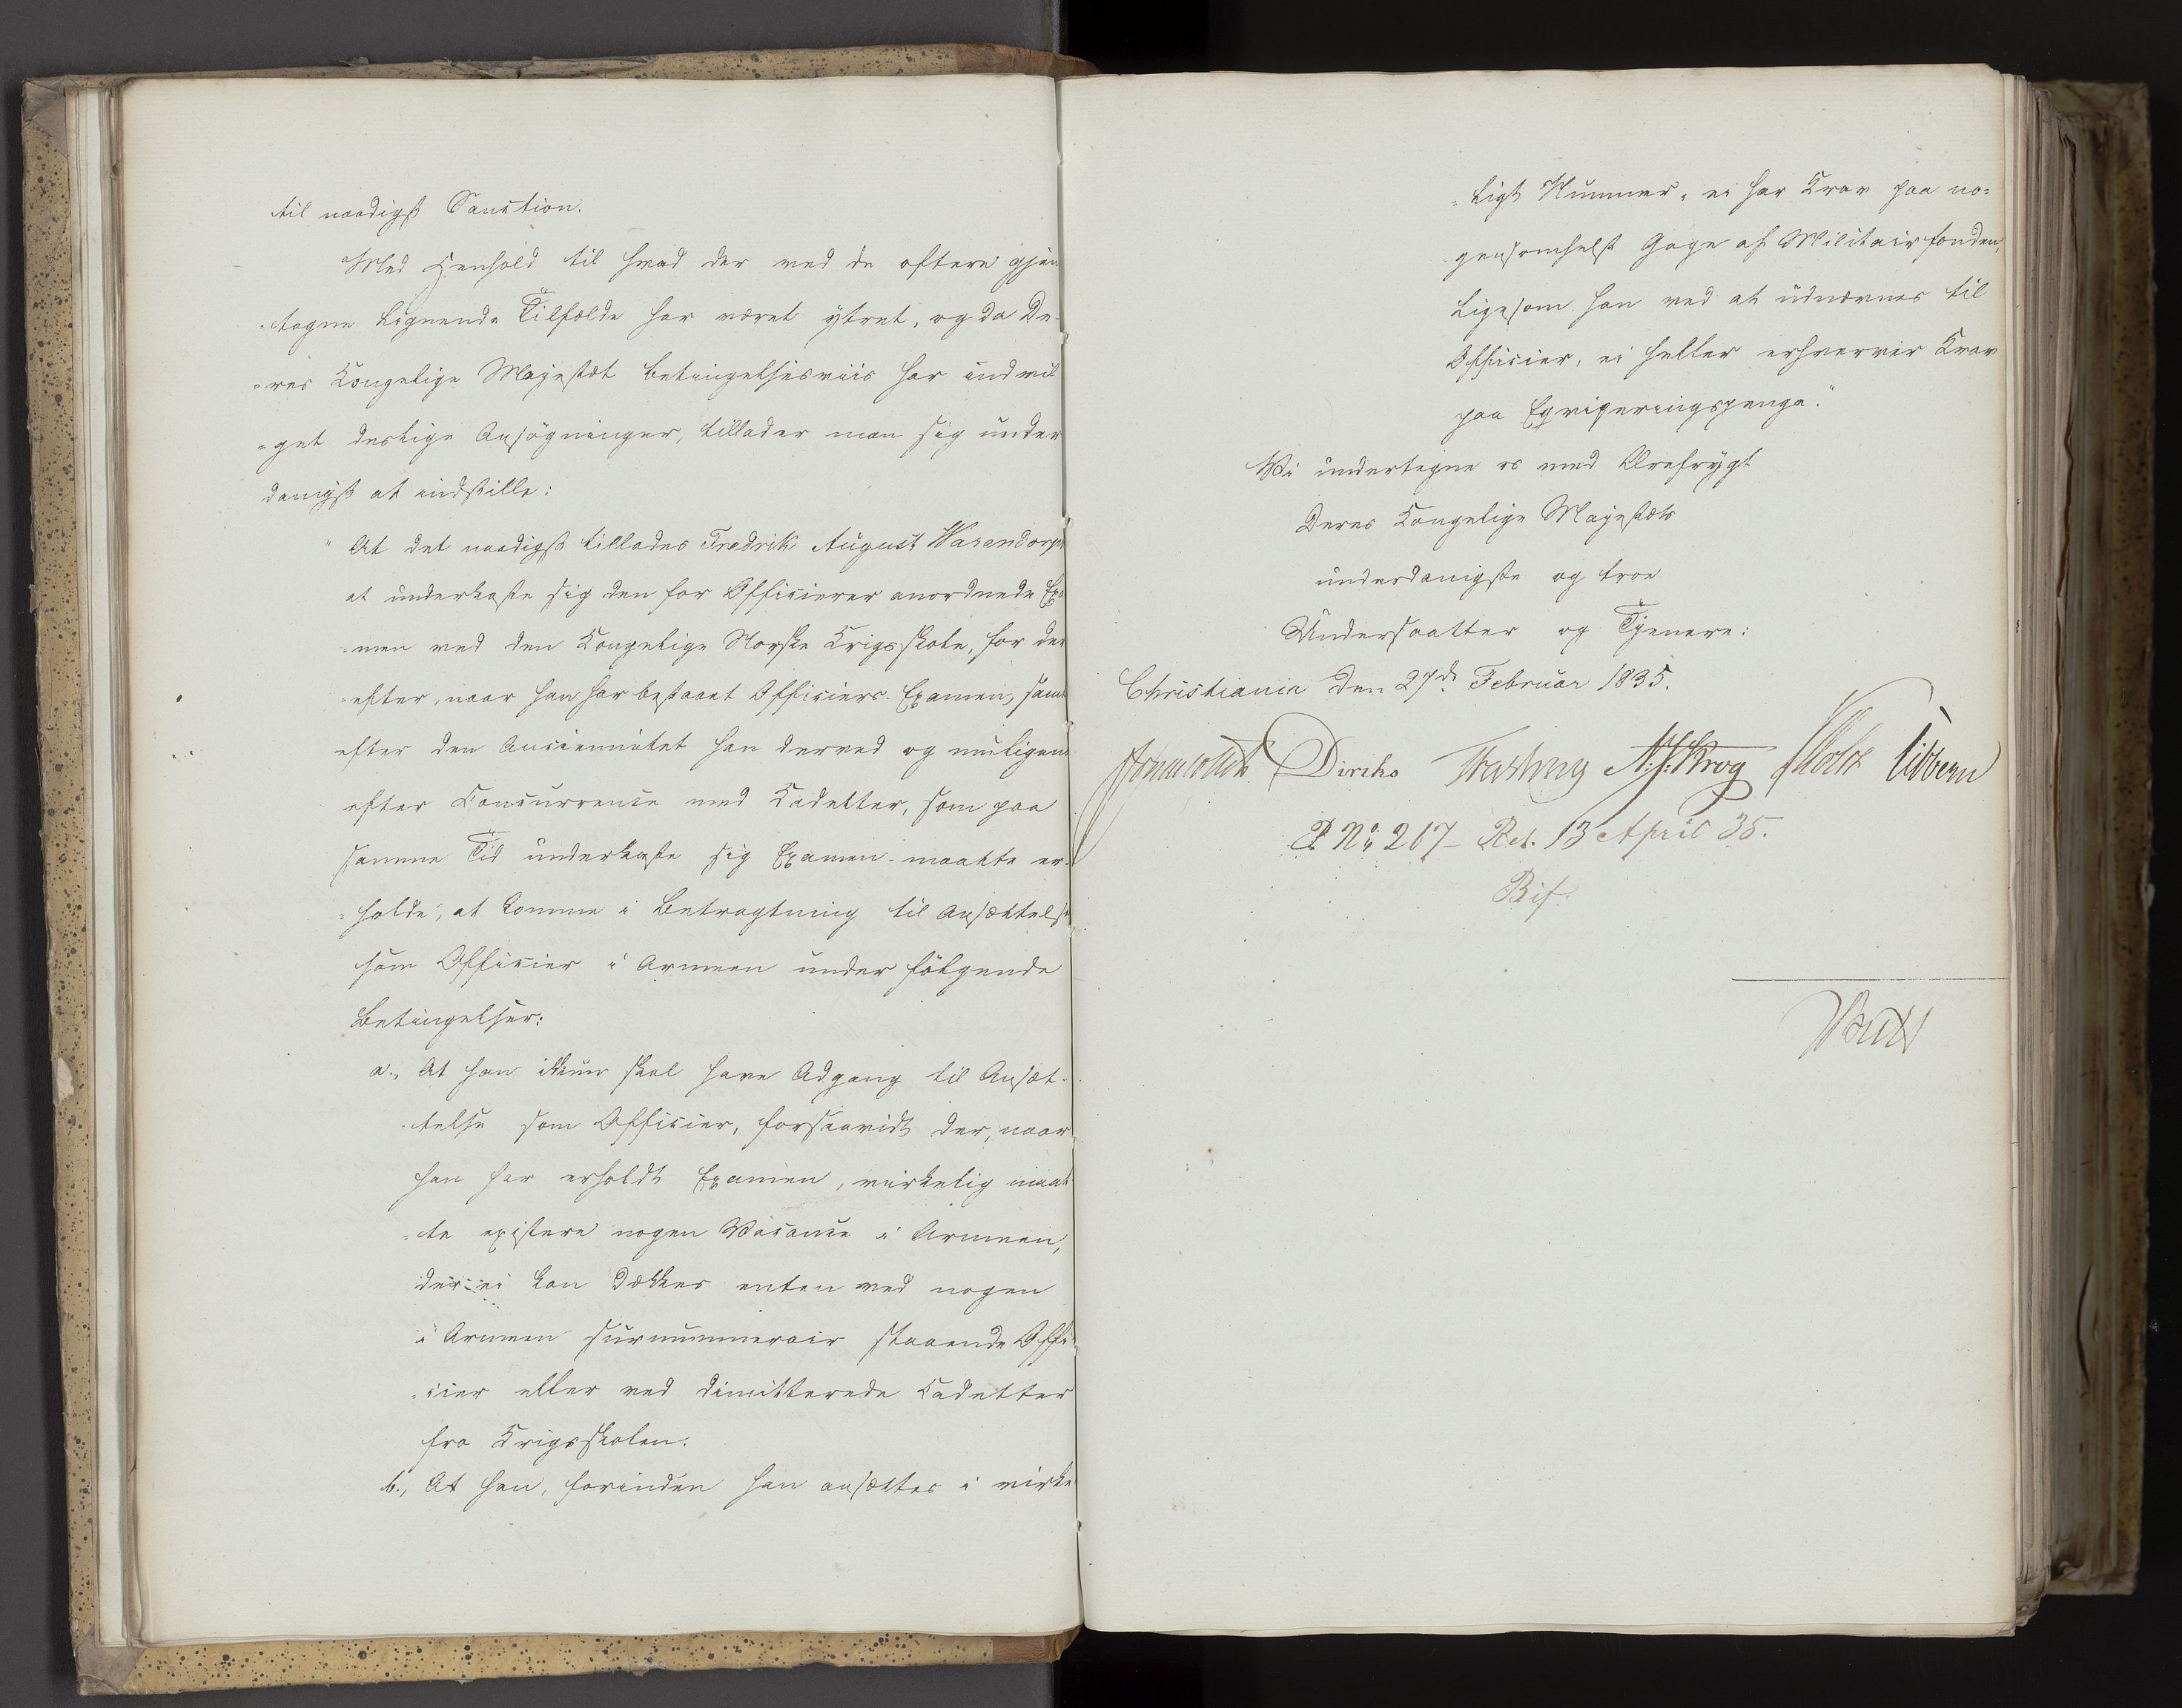 til naadigst Sanction.
Med Henhold til hvad der ved de oftere gjen
-tagne lignende Tilfælde har været yttret, og da De-
-res Kongelige Majestæt betingelsesviis har indvil
-get deslige Ansøgninger, tillader man sig under
danigst at indstille:
"At det naadigst tillades Fredrik August Wasendorph
at underkaste sig den for Officierer anordnede Exa
-men ved den Kongelige Norske Krigsskole, for der
-efter, naar han har bestaaet Officiers-Examen, samt
efter den Anciennitet han derved og muligens
efter Concurrence med Cadetter, som paa
samme Tid underkaste sig Examen maatte er-
-holde, at komme i Betragtning til Ansættelse
som Officier i Armeen under følgende
Betingelser:
a., At han ikkun skal have Adgang til Ansæt-
-telse som Officier, forsaavidt der, naar
han har erholdt Examen, virkelig maat
-te existere nogen Vacance i Armeen,
der ei kan dækkes enten ved nogen
i Armeen surnummerair staaende Offi-
-cier eller ved dimitterede Cadetter
fra Krigsskolen.
b., At han, forinden han ansættes i virke
-ligt Nummer, ei har Krav paa no-
gensomhelst Gage af Militairfonden,
ligesom han ved at udnævnes til
Officier, ei heller erhverver Krav
paa Eqviperingspenge."
Vi undertegne os med Ærefrygt
Deres Kongelige Majestæts
underdanigste og troe
Undersaatter og Tjenere:
Christiania den 27de Februar 1835.
Diriks N.J. Krog Holst Vibern
P No 267- Res. 13 April 35.
Bif.